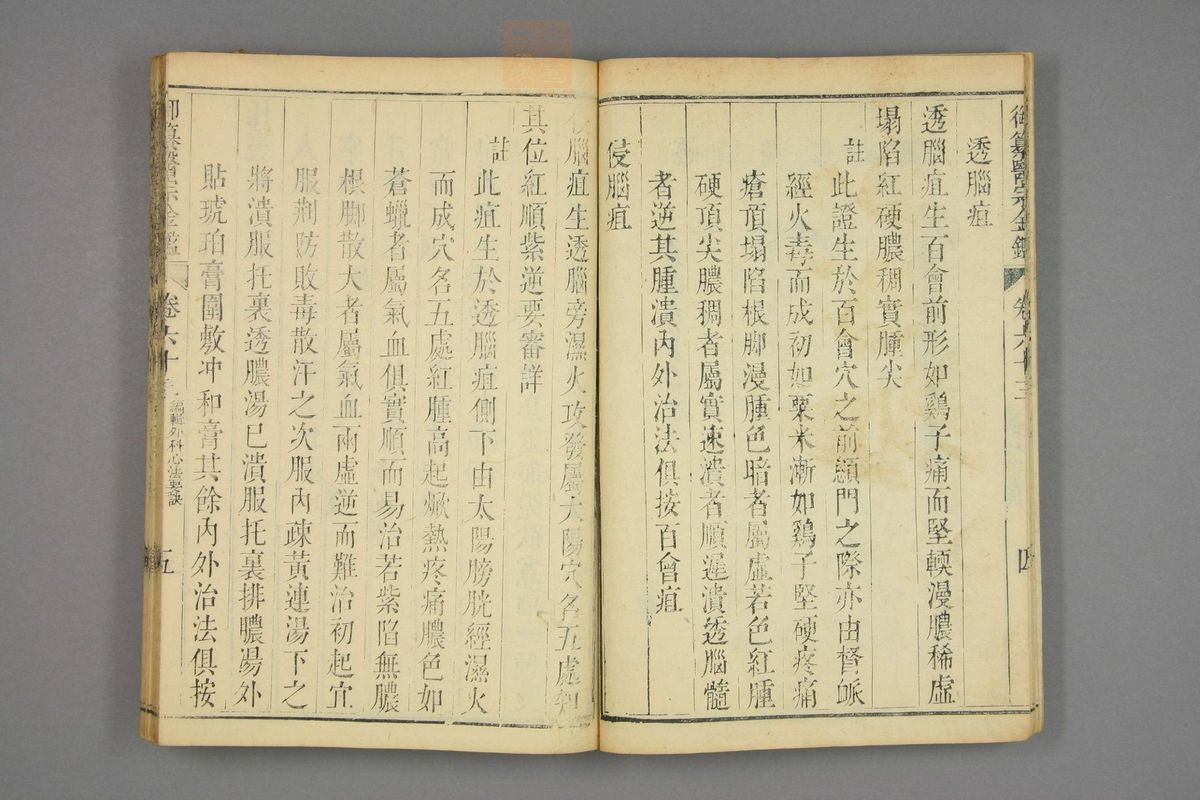 御纂醫宗金鑑 卷六十三 四
透腦疽
透腦疽生百會前形如鷄子痛而堅輭漫膿稀虛
塌陷紅硬膿稠實腫尖
註此證生於百會穴之前顖門之際亦由督脈
經火毒而成初如粟米漸如鷄子堅硬疼痛
瘡頂塌陷根脚漫腫色暗者屬虛若色紅腫
硬頂尖膿稠者屬實速潰者順遲潰透腦髓
者逆其腫潰內外治法俱按百會疽
侵腦疽
侵腦疽生透腦旁濕火攻發屬太陽穴名五處知
其位紅順紫逆要審詳
註此疽生於透腦疽側下由太陽膀胱經濕火
而成穴名五處紅腫高起焮熱疼痛膿色如
蒼蠟者屬氣血俱實順而易治若紫陷無膿
根脚散大者屬氣血兩虛逆而難治初起宜
服荆防敗毒散汗之次服內疎黃連湯下之
將潰服托裏透膿湯已潰服托裏排膿湯外
貼琥珀膏圍敷冲和膏其餘內外治法俱按
御纂醫宗金鑑 卷六十三 編輯外科心法要訣 五